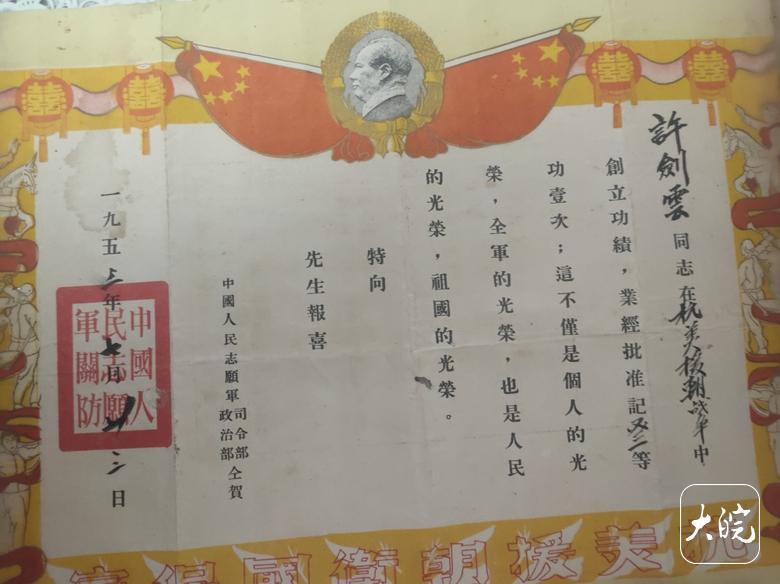 囍
囍
囍
囍
許劍雲同志在抗美援朝战争中
創立功績，業經批准記等
功壹次；這不僅是個人的光
榮，全軍的光榮，也是人民
的光榮，祖國的光榮。
特向
先生報喜
中國人民志願軍
司令部
政治部
仝賀
一九五三年七月廿三日
中國人
民志願
軍關防
抗美援朝衛國保家
大皖